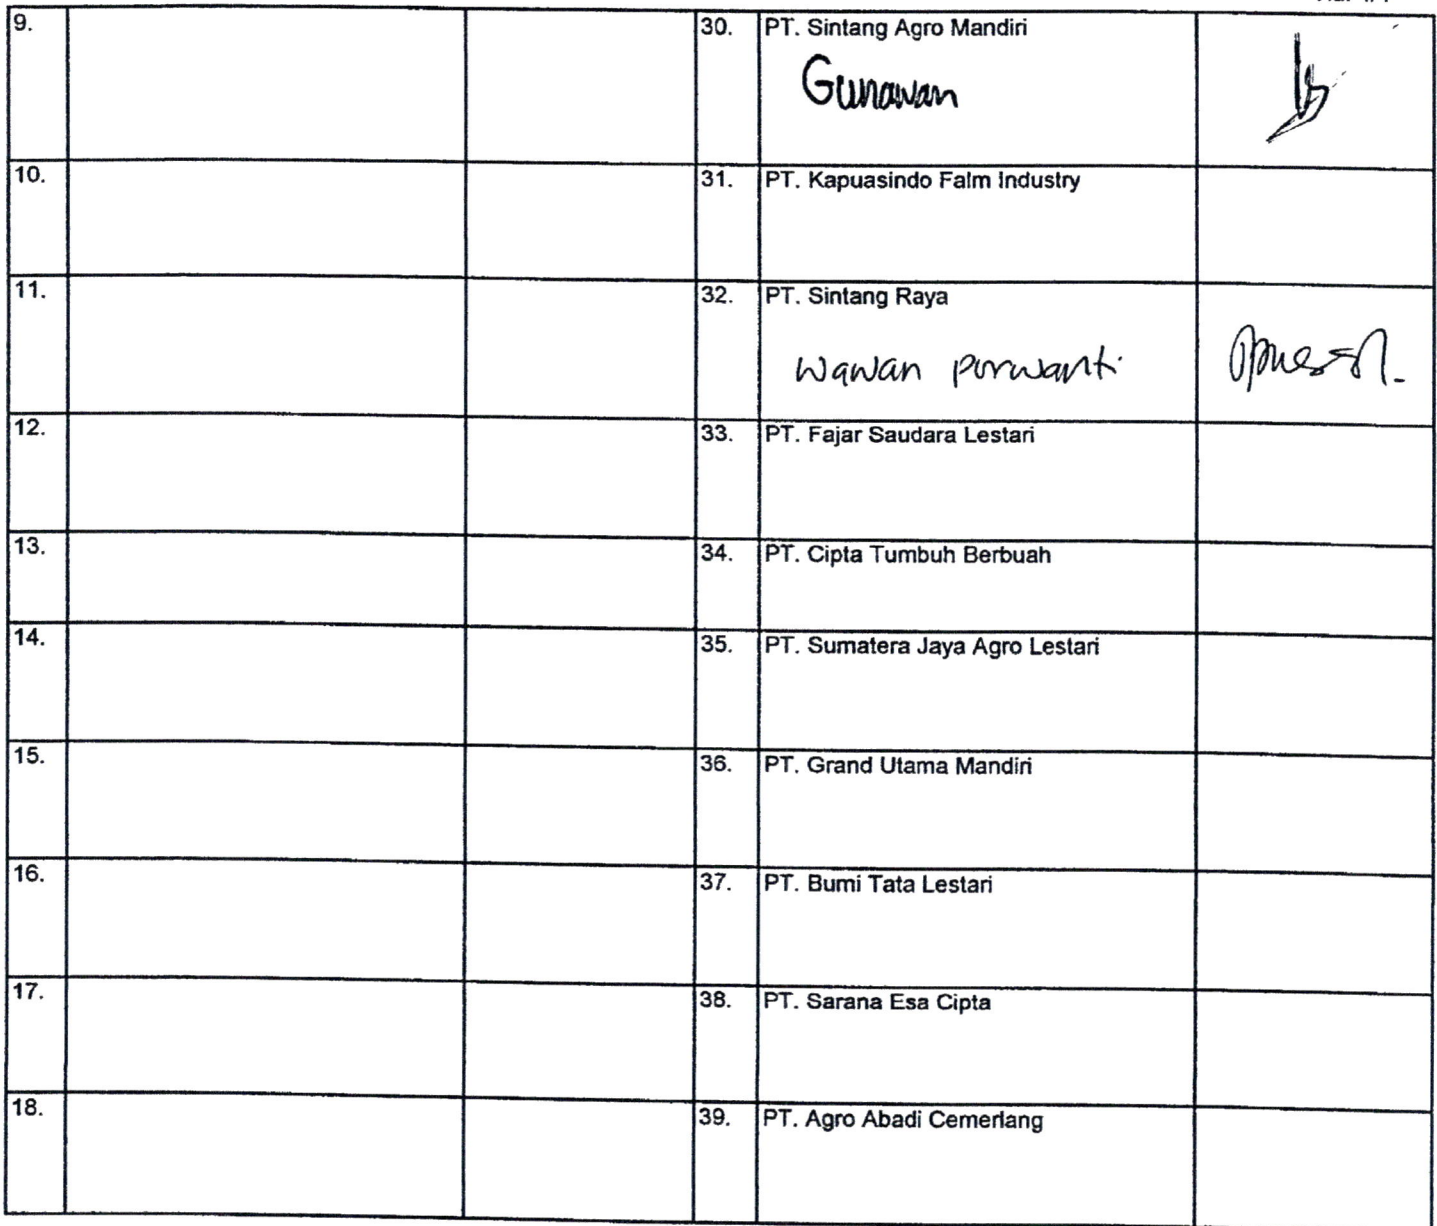 9.
30. PT. Sintang Agro Mandiri
Gunawan
10.
31. PT. Kapuasindo Falm Industry
11.
32. PT. Sintang Raya
wawan purwanti
12.
33. PT. Fajar Saudara Lestari
13.
34. PT. Cipta Tumbuh Berbuah
14.
35. PT. Sumatera Jaya Agro Lestari
15.
36. PT. Grand Utama Mandiri
16.
37. PT. Bumi Tata Lestari
17.
38. PT. Sarana Esa Cipta
18.
39. PT. Agro Abadi Cemerlang